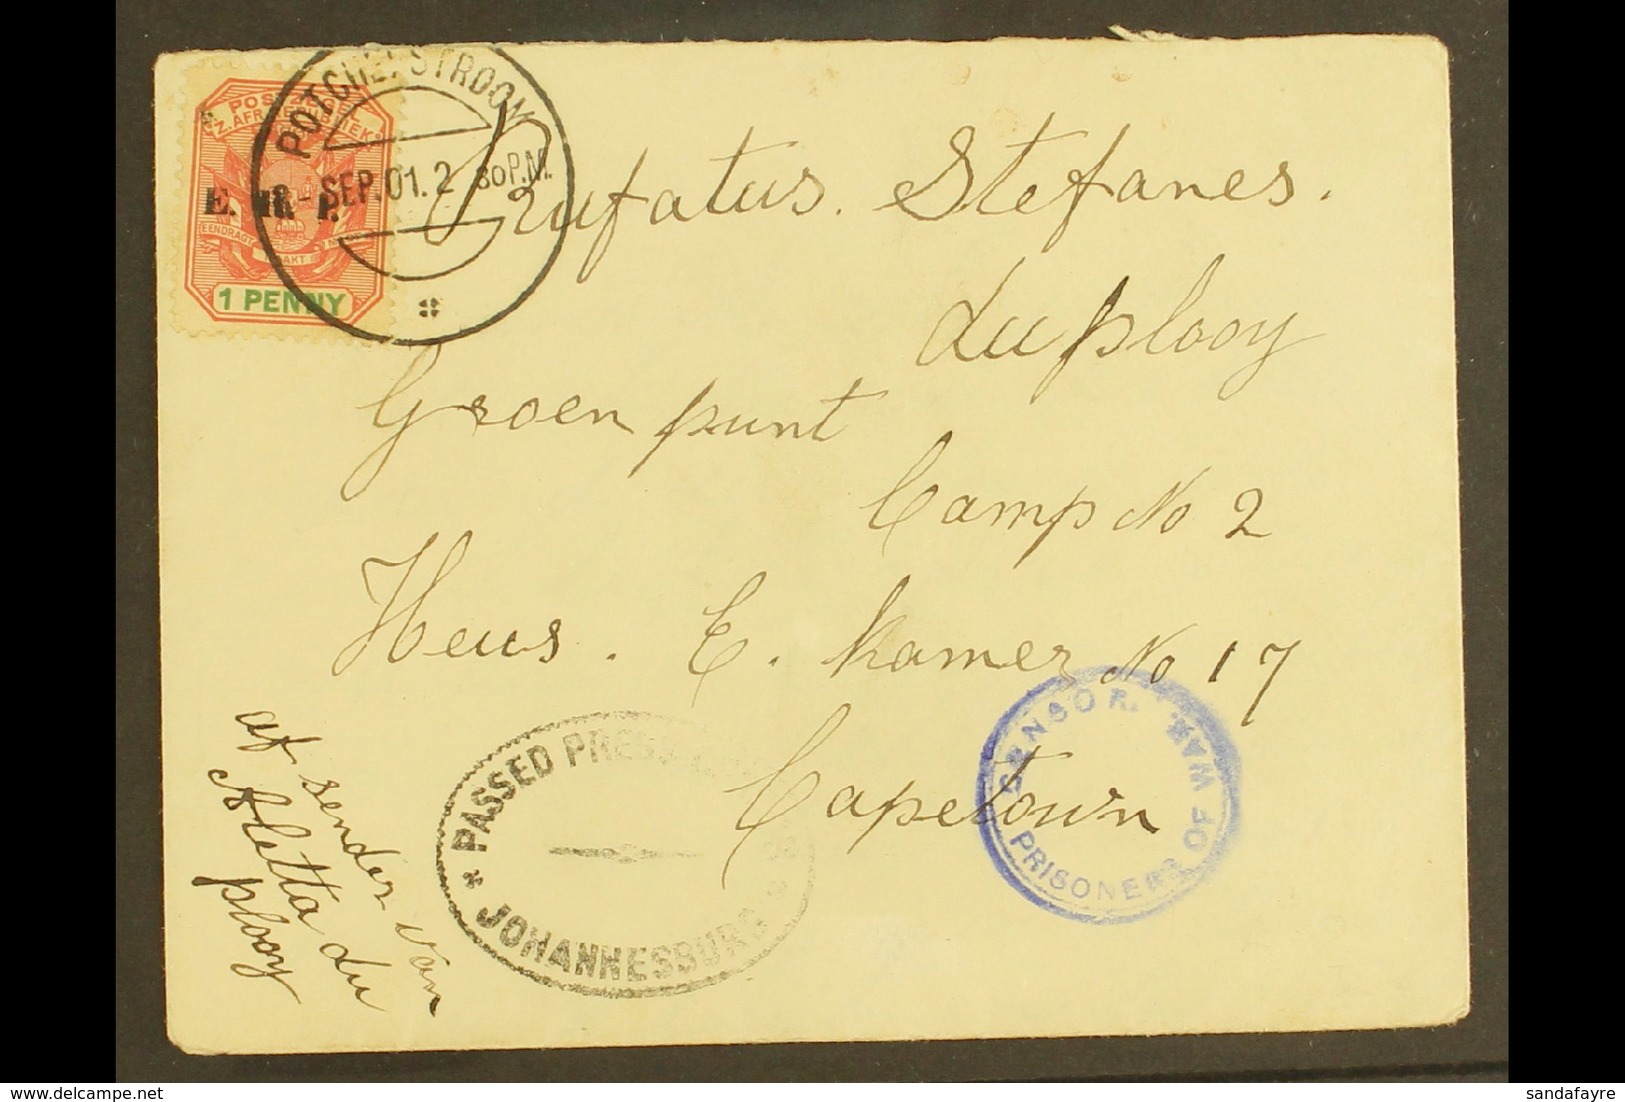 POSTZEGEL
Z. AFR. REPUBLIEK
E. R. I.
EENDRAGT MAAKT
1 PENNY
POTCHEFSTROOM
SEP. 01. 2 30 P.M.
Stefanes.
du plooy
Groenpunt
Camp No 2
Heus. E. Kamer No 17
Capetown
af sender van
Aletta du
plooy
* PASSED PRESS
JOHANNESBURG *
CENSOR.
PRISONERS OF WAR.
sandafayre